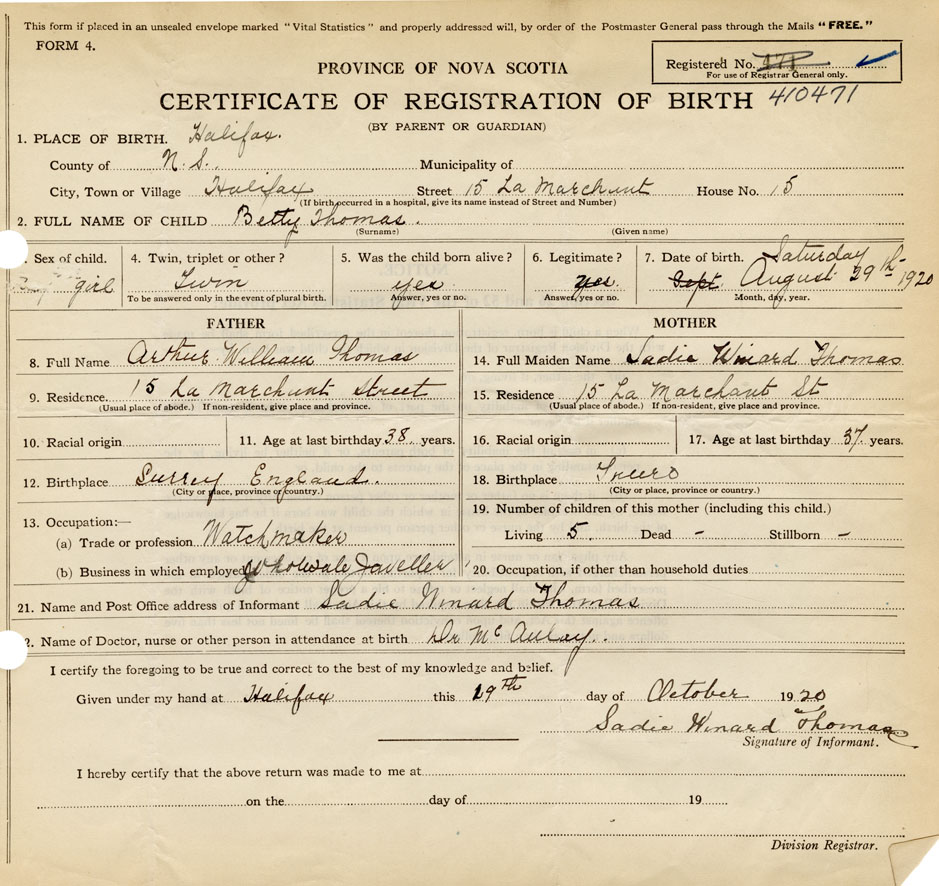 This form if placed in an unsealed envelope marked "Vital Statistics" and properly addressed will, by order of the Postmaster General pass through the Mails "FREE."
FORM 4.
Registered No.
For use of Registrar General only.
PROVINCE OF NOVA SCOTIA
CERTIFICATE OF REGISTRATION OF BIRTH 410471
(BY PARENT OR GUARDIAN)
1. PLACE OF BIRTH. Halifax.
County of N. S. Municipality of
City, Town or Village Halifax Street 15 La Marchunt House No. 15
(If birth occurred in a hospital, give its name instead of Street and Number)
2. FULL NAME OF CHILD Betty Thomas.
(Surname) (Given name)
Sex of child. 4. Twin, triplet or other? 5. Was the child born alive? 6. Legitimate? 7. Date of birth. Saturday
girl Twin yes yes. Sept. August 29th 1920
To be answered only in the event of plural birth. Answer, yes or no. Answer, yes or no. Month, day, year.
FATHER
8. Full Name Arthur William Thomas
9. Residence. 15 La Marchunt Street
(Usual place of abode.) If non-resident, give place and province.
10. Racial origin 11. Age at last birthday 38 years.
12. Birthplace Surrey England.
(City or place, province or country.)
13. Occupation:—
(a) Trade or profession Watchmaker
(b) Business in which employed Wholsale Jaweller
MOTHER
14. Full Maiden Name Sadie Winard Thomas
15. Residence 15 La Marchant St
(Usual place of abode.) If non-resident, give place and province.
16. Racial origin 17. Age at last birthday 37 years.
18. Birthplace Truro
(City or place, province or country.)
19. Number of children of this mother (including this child.)
Living 5. Dead - Stillborn -
20. Occupation, if other than household duties
21. Name and Post Office address of Informant Sadie Winard Thomas
2. Name of Doctor, nurse or other person in attendance at birth Dr McAulay.
I certify the foregoing to be true and correct to the best of my knowledge and belief.
Given under my hand at Halifax this 19th day of October 1920
Sadie Winard Thomas
Signature of Informant.
I hereby certify that the above return was made to me at
on the day of 19
Division Registrar.